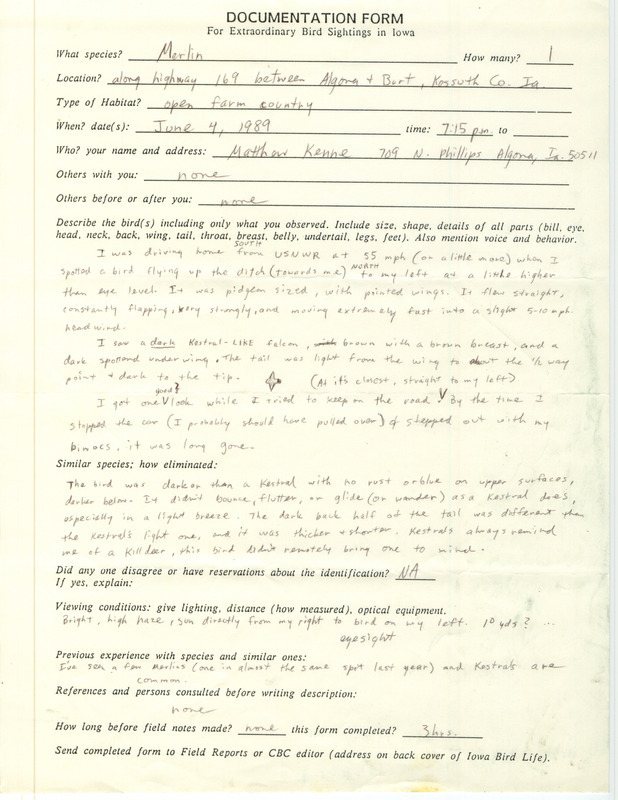 DOCUMENTATION FORM
For Extraordinary Bird Sightings in Iowa
What species? Merlin How many? 1
Location? along highway 169 between Algona + Burt, Kossuth Co. Ia.
Type of Habitat? open farm country
When? date(s): June 4, 1989 time: 7:15 p.m. to
Who? your name and address: Matthew Kenne 709 N. Phillips Algona, Ia. 50511
Others with you? none
Others before or after you? none
Describe the bird(s) including only what you observed. Include size, shape, details of all parts (bill, eye,
head, neck, back, wing, tail, throat, breast, belly, undertail, legs, feet). Also mention voice and behavior.
I was driving home SOUTH from USNWR at 55 mph (or a little more) when I
spotted a bird flying up the ditch (towards me) NORTH to my left at a little higher
than eye level. It was pidgeon sized, with pointed wings. It flew straight,
constantly flapping, very strongly, and moving extremely fast into a slight 5-10 mph.
headwind.
I saw a dark Kestral-LIKE falcon, brown with a brown breast, and a
dark spotted underwing. The tail was light from the wing to about the 1/2 way
point + dark to the tip. (At it's closest, straight to my left)
I got one good look while I tried to keep on the road! By the time I
stopped the car (I probably should have pulled over) & stepped out with my
binocs, it was long gone.
Similar species; how eliminated:
The bird was darker than a Kestral with no rust or blue on upper surfaces,
darker below. It didn't bounce, flutter, or glide (or wander) as a Kestral does,
especially in a light breeze. The dark back half of the tail was different than
the Kestral's light one, and it was thicker + shorter. Kestrals always remind
me of a Killdeer, this bird didn't remotely bring one to mind.
Did any one disagree or have reservations about the identification? NA
If yes, explain:
Viewing conditions: give lighting, distance (how measured), optical equipment.
Bright, high haze, sun directly from my right to bird on my left. 10 yds? ...
eyesight
Previous experience with species and similar ones:
I've seen a few Merlins (one in almost the same spot last year) and Kestrals are
common.
References and persons consulted before writing description:
none
How long before field notes made? none this form completed? 3 hrs.
Send completed form to Field Reports or CBC editor (address on back cover of Iowa Bird Life).